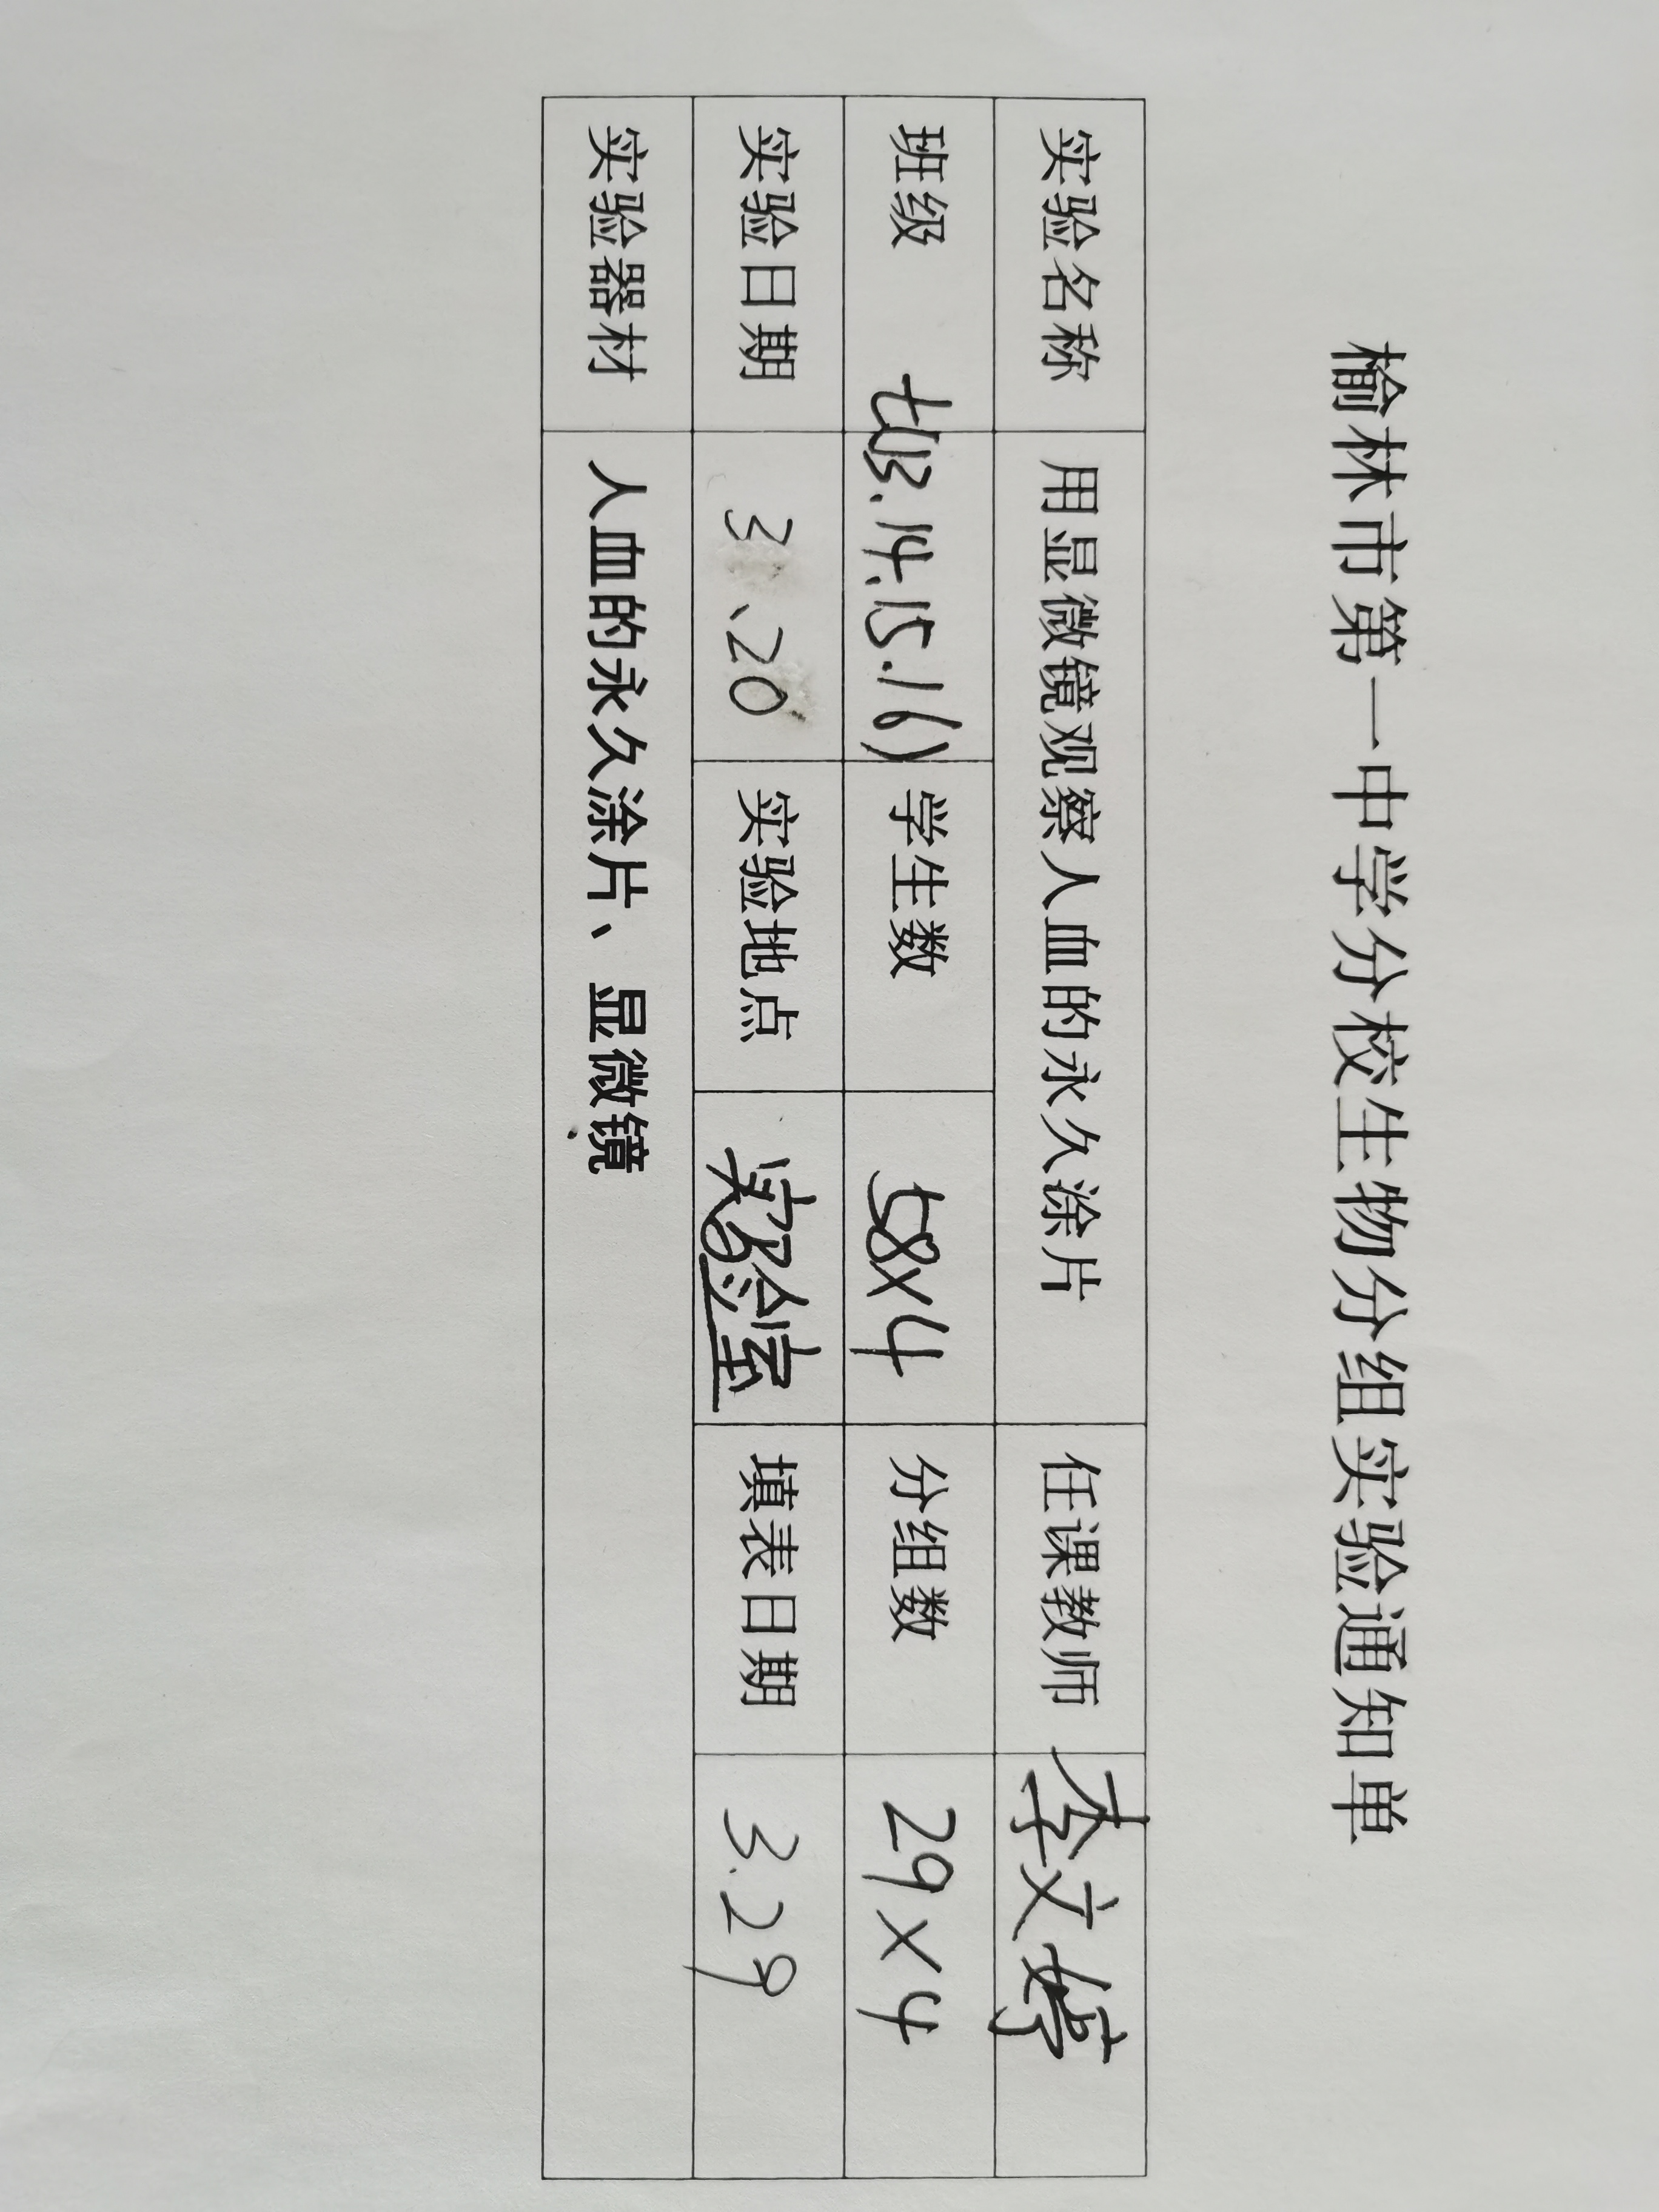 榆林市第一中学分校生物分组实验通知单
实验名称 用显微镜观察人血的永久涂片 任课教师 李文婷
班级 七(13.14.15.16) 学生数 58×4 分组数 29×4
实验日期 3、20 实验地点 实验室 填表日期 3.29
实验器材 人血的永久涂片、显微镜